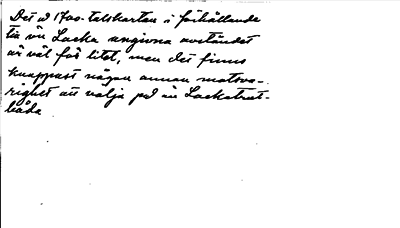 Det å 1700-talskartan i förhållande
till ön Lacka angivna avståndet
är väl för litet, men det finns
knappast någon annan motsva-
righet att välja på än Lackatrut-
båda